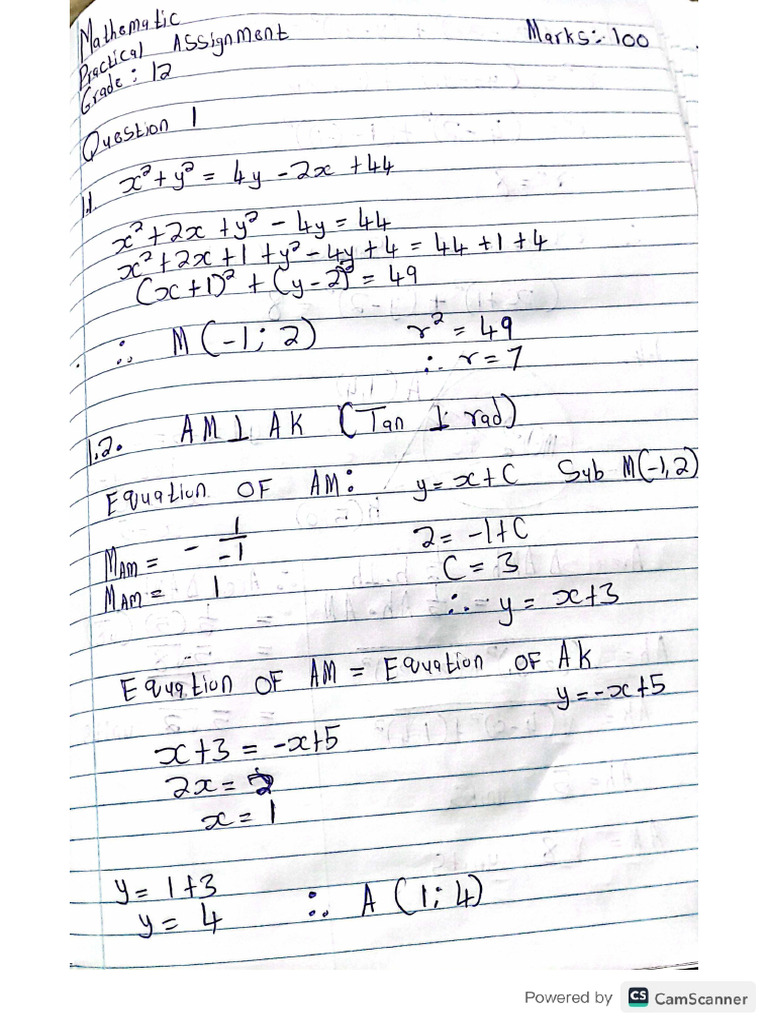 Mathematic
Practical Assignment
Marks:- 100
Grade : 12
Question 1
1.1. x² + y² = 4y - 2x + 44
x² + 2x + y² - 4y = 44
x² + 2x + 1 + y² - 4y + 4 = 44 + 1 + 4
(x + 1)² + (y - 2)² = 49
∴ M (-1; 2) r² = 49
∴ r = 7
1.2. AM ⊥ AK (Tan ⊥ rad)
Equation OF AM: y = x + C Sub M(-1,2)
M_AM = - 1/-1 2 = -1 + C
M_AM = 1 C = 3
∴ y = x + 3
Equation OF AM = Equation OF AK
y = -x + 5
x + 3 = -x + 5
2x = 2
x = 1
y = 1 + 3
y = 4 ∴ A (1; 4)
Powered by CS CamScanner